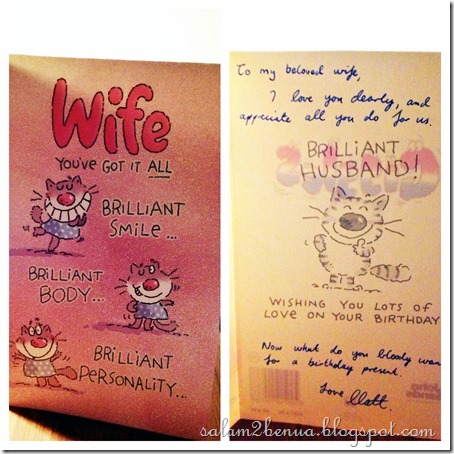 Wife
YOU'VE GOT IT ALL
BRILLIANT
SMILE ...
BRILLIANT
BODY...
BRILLIANT
PERSONALITY...
To my beloved wife,
I love you dearly, and
appreciate all you do for us.
BRILLIANT
HUSBAND!
WISHING YOU LOTS OF
LOVE ON YOUR BIRTHDAY
Now what do you bloody wan
for a birthday present.
Love Matt.
salam2benua.blogspot.com